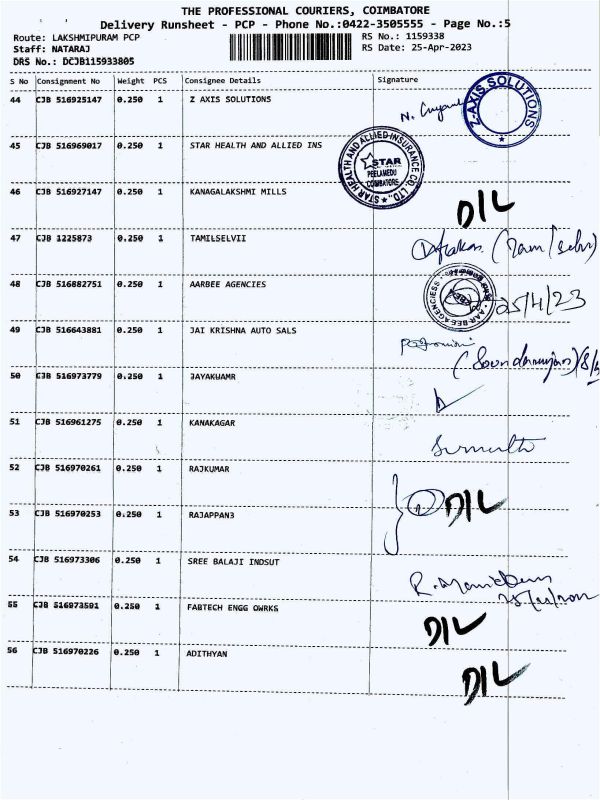 THE PROFESSIONAL COURIERS, COIMBATORE
Delivery Runsheet - PCP - Phone No.:0422-3505555 - Page No.:5
Route: LAKSHMIPURAM PCP
Staff: NATARAJ
DRS No.: DCJB115933805
RS No.: 1159338
RS Date: 25-Apr-2023
S No Consignment No Weight PCS Consignee Details Signature
44 CJB 516925147 0.250 1 Z AXIS SOLUTIONS
Z-AXIS SOLUTIONS
45 CJB 516969017 0.250 1 STAR HEALTH AND ALLIED INS
STAR HEALTH AND ALLIED INSURANCE CO. LTD.
STAR
PEELAMEDU
COIMBATORE
46 CJB 516927147 0.250 1 KANAGALAKSHMI MILLS
D/L
47 CJB 1225873 0.250 1 TAMILSELVII
48 CJB 516882751 0.250 1 AARBEE AGENCIES
25/4/23
49 CJB 516643881 0.250 1 JAI KRISHNA AUTO SALS
50 CJB 516973779 0.250 1 JAYAKUAMR
51 CJB 516961275 0.250 1 KANAKAGAR
52 CJB 516970261 0.250 1 RAJKUMAR
D/L
53 CJB 516970253 0.250 1 RAJAPPAN3
54 CJB 516973306 0.250 1 SREE BALAJI INDSUT
55 CJB 516973591 0.250 1 FABTECH ENGG OWRKS
D/L
56 CJB 516970226 0.250 1 ADITHYAN
D/L